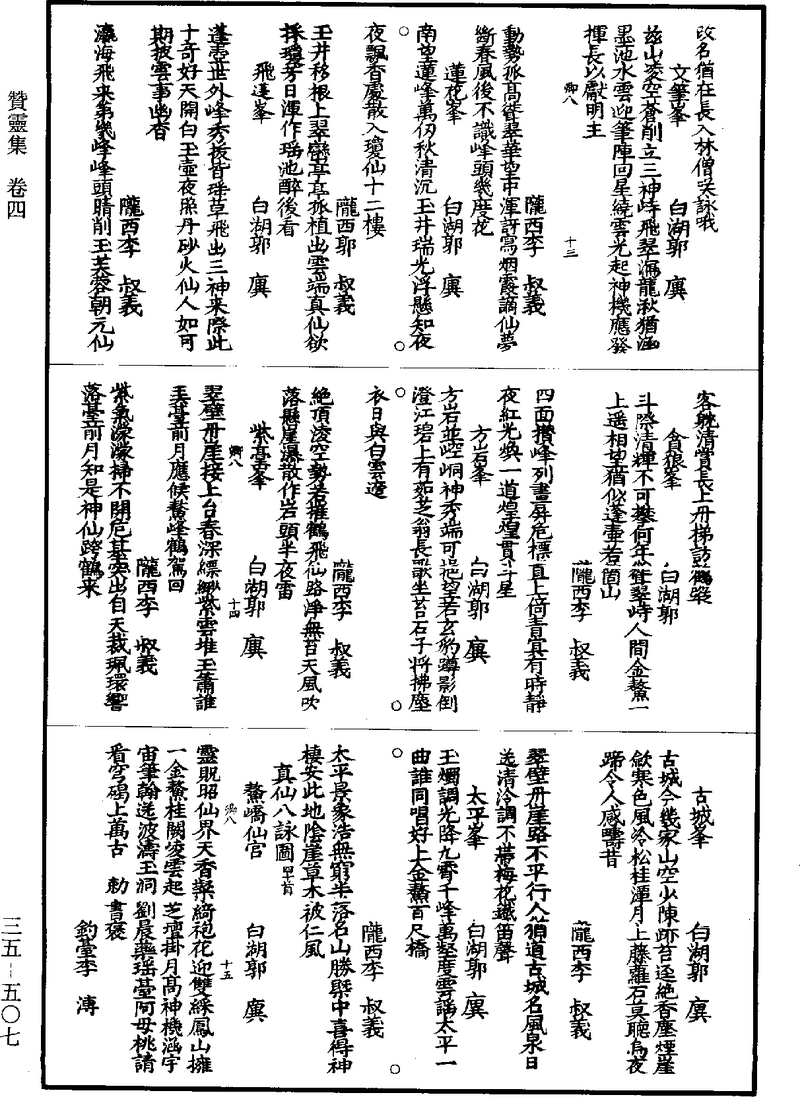 贊靈集 卷四
三五-五〇七
改名猶在長入林僧笑詠哦
文筆峯 白湖郭 㒹
茲山凌空蒼削立三神峙飛翠漏龍湫猶涵
墨池水雲迎筆陣回星繞雲光起神機應發
揮長以獻明主
卿八 十三
隴西李 叔義
動勢孤高聳翠華望中渾訝寫烟霞謫仙夢
斷春風後不識峰頭幾度花
蓮花峯 白湖郭 㒹
南望蓮峰萬仞秋清沉玉井瑞光浮懸知夜
夜飄香處散入瓊仙十二樓
隴西郭 叔義
玉井移根上翠巒亭亭孤植出雲端真仙欲
採瓊芳日渾作瑤池醉後看
飛蓬峯 白湖郭 㒹
蓬壺世外峰秀拔皆珠草飛出三神來際此
十奇好天開白玉壺夜照丹砂火仙人如可
期披雲事幽香
隴西李 叔義
瀛海飛來第幾峰峰頭睛削玉芙蓉朝元仙
客貺清賞長上丹梯訪鶴蹤
貪狼峯 白湖郭
斗際清輝不可攀何年聳翠峙人間金鰲一
上遥相望猶似蓬壺若箇山
隴西李 叔義
四面攢峰列畫屏危標直上倚青冥有時靜
夜紅光煥一道煌煌貫斗星
方岩峯 白湖郭 㒹
方岩並崆峒神秀端可挹望若玄豹蹲影倒
澄江碧上有茹芝翁長歌坐苔石子將拂塵
衣日與白雲適
隴西李 叔義
絶頂淩空勢若摧鶴飛仙路淨無苔天風吹
落懸崖瀑散作岩頭半夜雷
紫高峯 白湖郭 㒹
卿八 十四
翠壁丹崖接上台春深縹緲紫雲堆玉簫誰
弄臺前月應候鰲峰鶴駕回
隴西李 叔義
紫氣濛濛掃不開危基突出自天裁珮環響
落臺前月知是神仙跨鶴來
古城峯 白湖郭 㒹
古城今幾家山空少陳跡苔逕絶香塵煙崖
歛寒色風冷松桂潭月上藤蘿石莫聽烏夜
蹄令人感疇昔
隴西李 叔義
翠壁丹崖路不平行人猶道古城名風泉日
送清冷調不帶梅花鐵笛聲
太平峯 白湖郭 㒹
玉燭調光降九霄千峰萬壑度雲謡太平一
曲誰同唱好上金鰲百尺橋
隴西李 叔義
太平景象浩無窮半落名山勝槩中喜得神
棲安此地陰崖草木被仁風
真仙八詠圖 早首
鰲嶠仙宫 白湖郭 㒹
卿八 十五
靈貺昭仙界天香襲綺袍花迎雙綵鳳山擁
一金鰲桂闕凌雲起芝壇掛月高神機涵宇
宙筆翰送波濤玉洞劉晨藥瑶臺阿母桃請
看穹碣上萬古勑書褒
釣臺李 溥